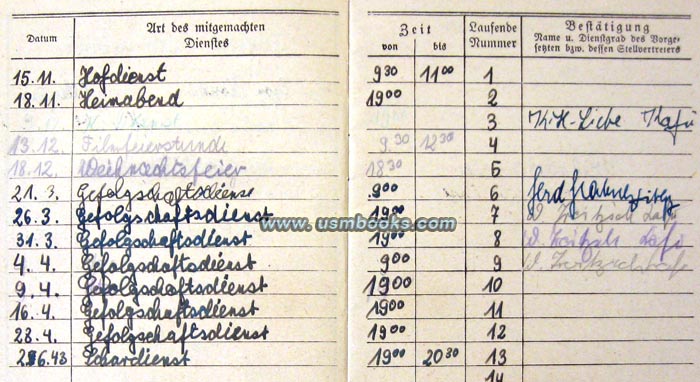 Datum Art des mitgemachten Dienstes Zeit von bis Laufende Nummer Bestätigung
Name u. Dienstgrad des Vorge-
setzten bzw. dessen Stellvertreters
15.11. Hofdienst 9³⁰ 11⁰⁰ 1
18.11. Heimabend 19⁰⁰ 2
3
13.12. Filmfeierstunde 9.³⁰ 12³⁰ 4
18.12. Weihnachtsfeier 18³⁰ 5
21.3. Gefolgschaftsdienst 9⁰⁰ 6
26.3. Gefolgschaftsdienst 19⁰⁰ 7
31.3. Gefolgschaftsdienst 19⁰⁰ 8
4.4. Gefolgschaftsdienst 9⁰⁰ 9
9.4. Gefolgschaftsdienst 19⁰⁰ 10
16.4. Gefolgschaftsdienst 19⁰⁰ 11
28.4. Gefolgschaftsdienst 19⁰⁰ 12
Schardienst 19⁰⁰ 20³⁰ 13
14
www.usmbooks.com